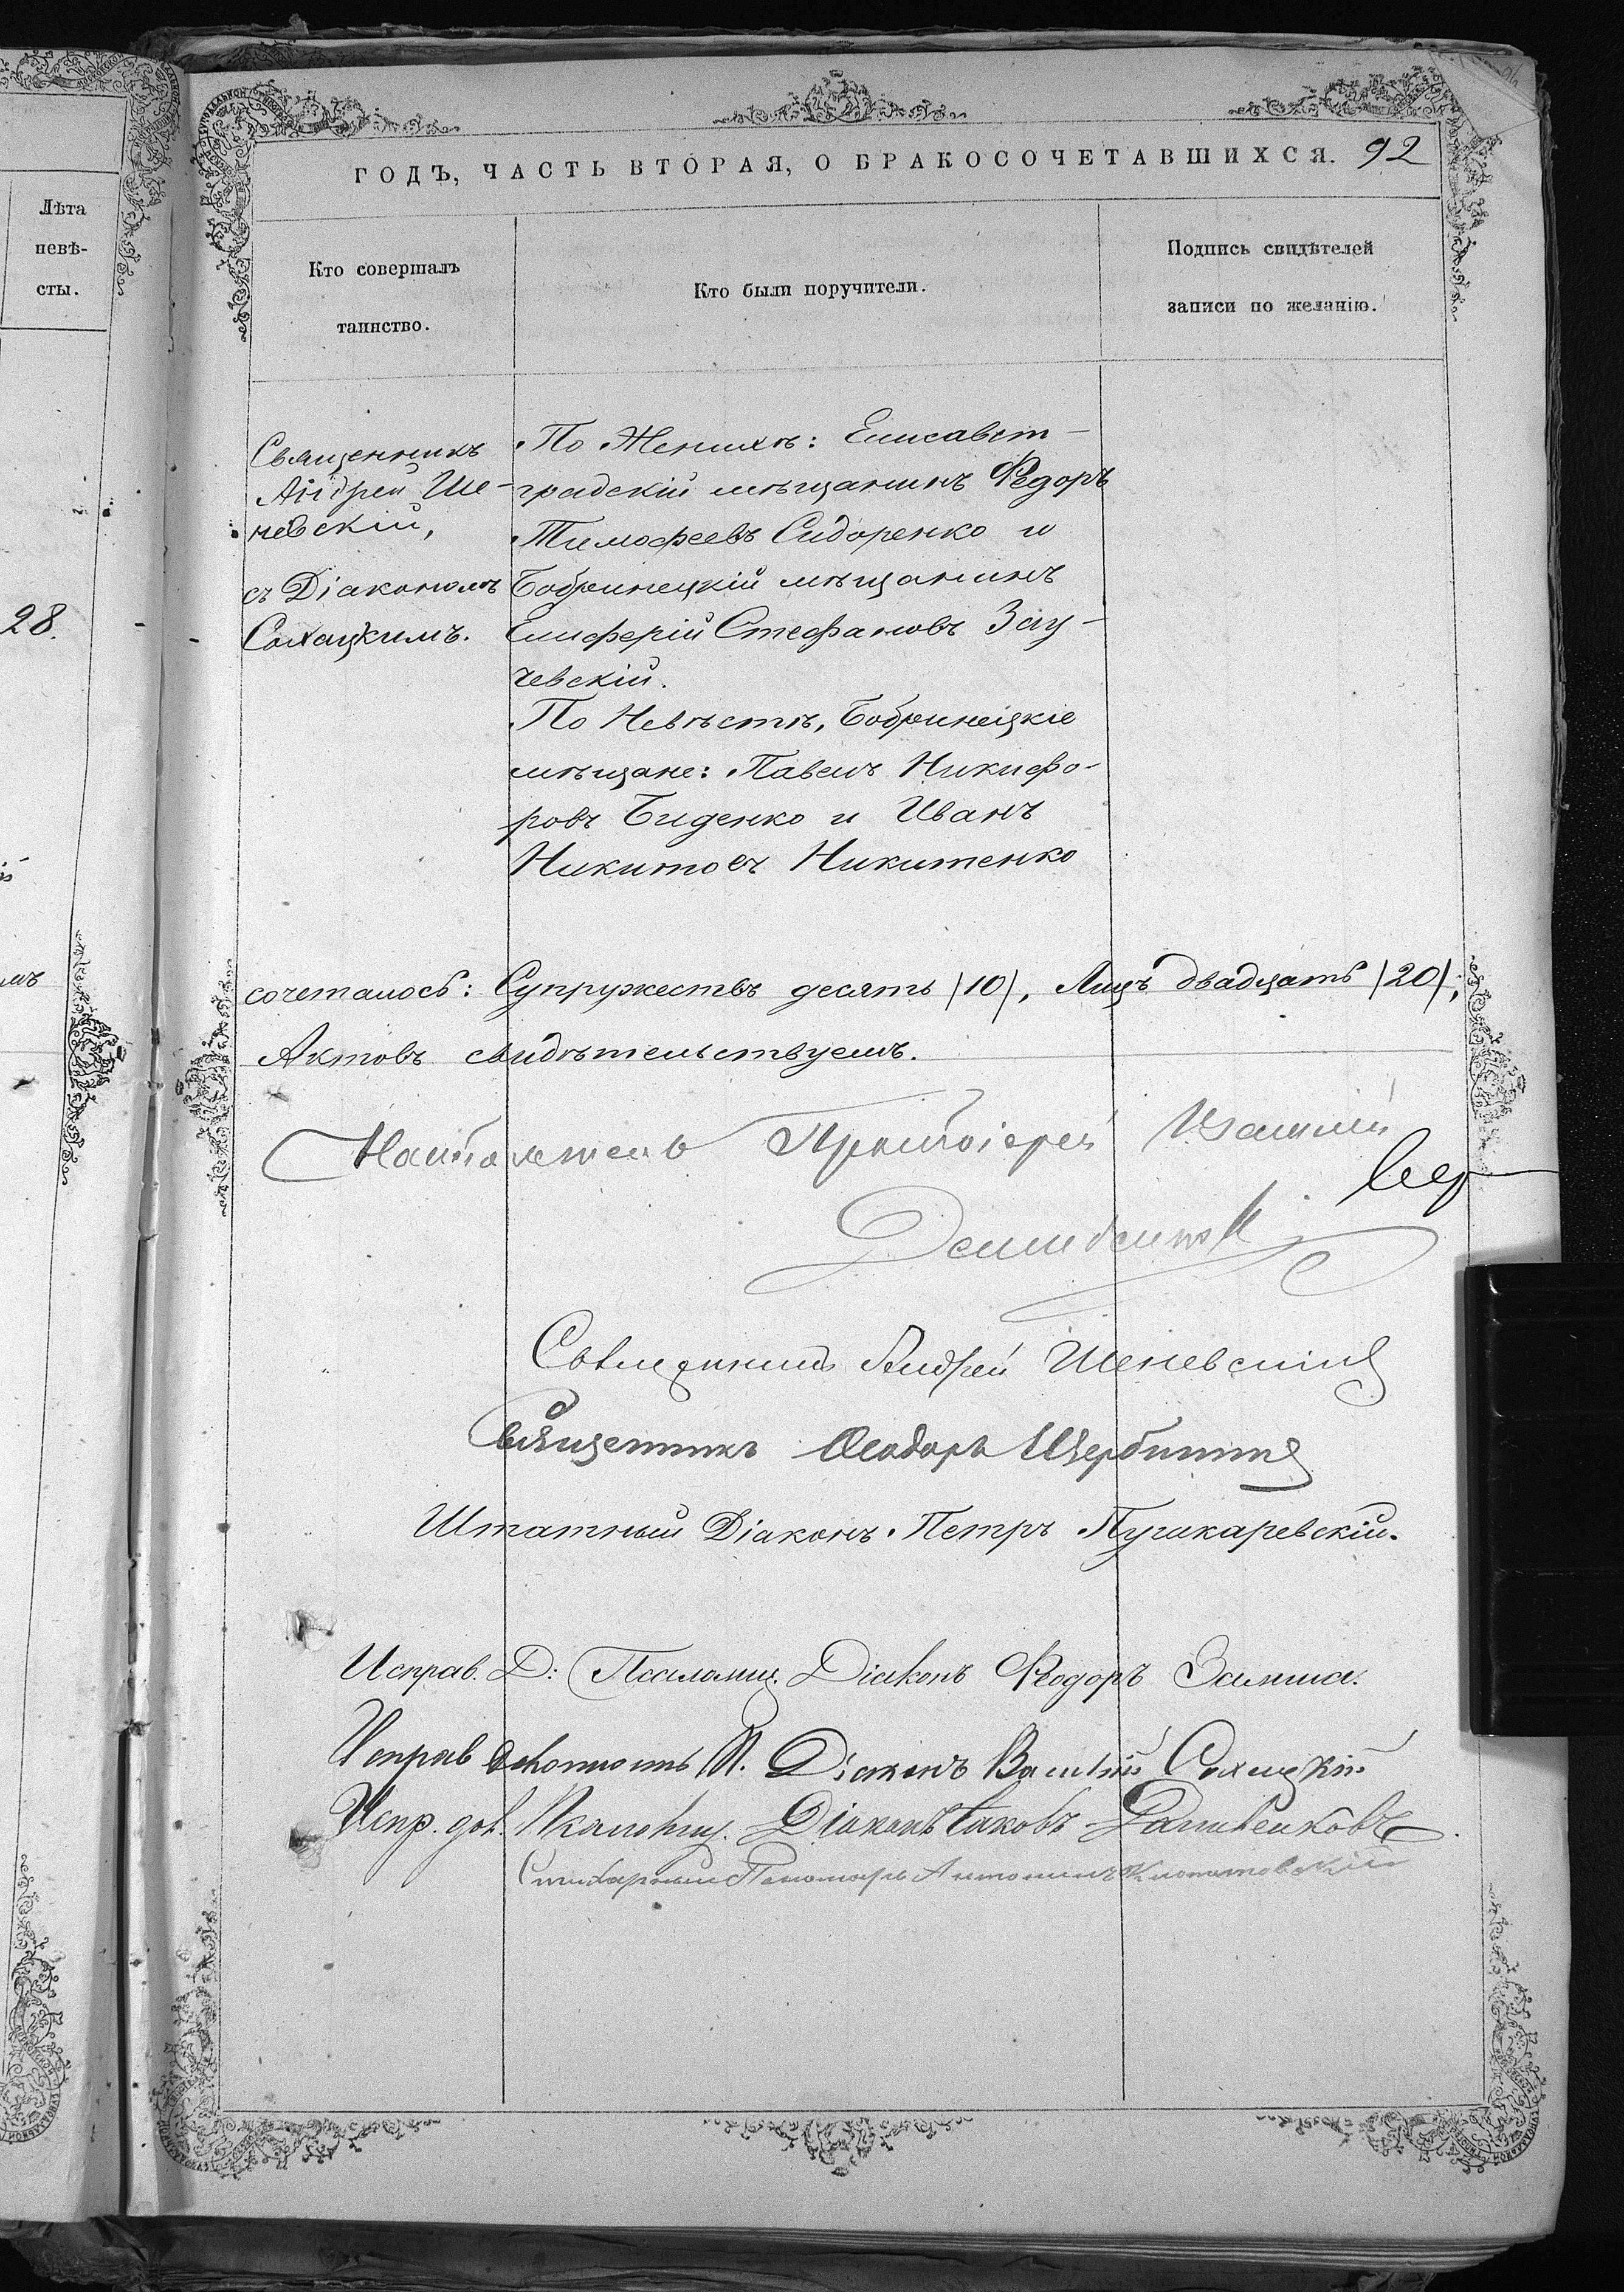 Лѣта
невѣ-
сты.
28.
ГОДЪ, ЧАСТЬ ВТОРАЯ, О БРАКОСОЧЕТАВШИХСЯ. 92
Кто совершалъ
таинство.
Кто были поручители.
Подпись свидѣтелей
записи по желанію.
Священникъ
Андрей Ше-
невскій,
съ Діакономъ
Сохацкимъ.
По Женихѣ: Елисавет-
градскій мѣщанинъ Ѳедоръ
Тимофеевъ Сидоренко и
Бобринецкій мѣщанинъ
Елиферій Стефановъ Зау-
чевскій.
По Невѣстѣ, Бобринецкіе
мѣщане: Павелъ Никифо-
ровъ Биденко и Иванъ
Никитовъ Никитенко
сочеталось: Супружествъ десять /10/, Лицъ двадцать /20/;
Актовъ свидѣтельствуемъ.
Настоятель Протоіерей
Священникъ Андрей Шеневскій
Священникъ Ѳеодоръ Щербина
Штатный Діаконъ Петръ Пушкаревскій.
Исправ. Д: Псаломщ. Діаконъ Ѳеодоръ
Исправ должность П. Діаконъ Василій Сохацкій
Испр. дол. Псаломщ. Діаконъ Іаковъ
Стихарный Пономарь Антонинъ